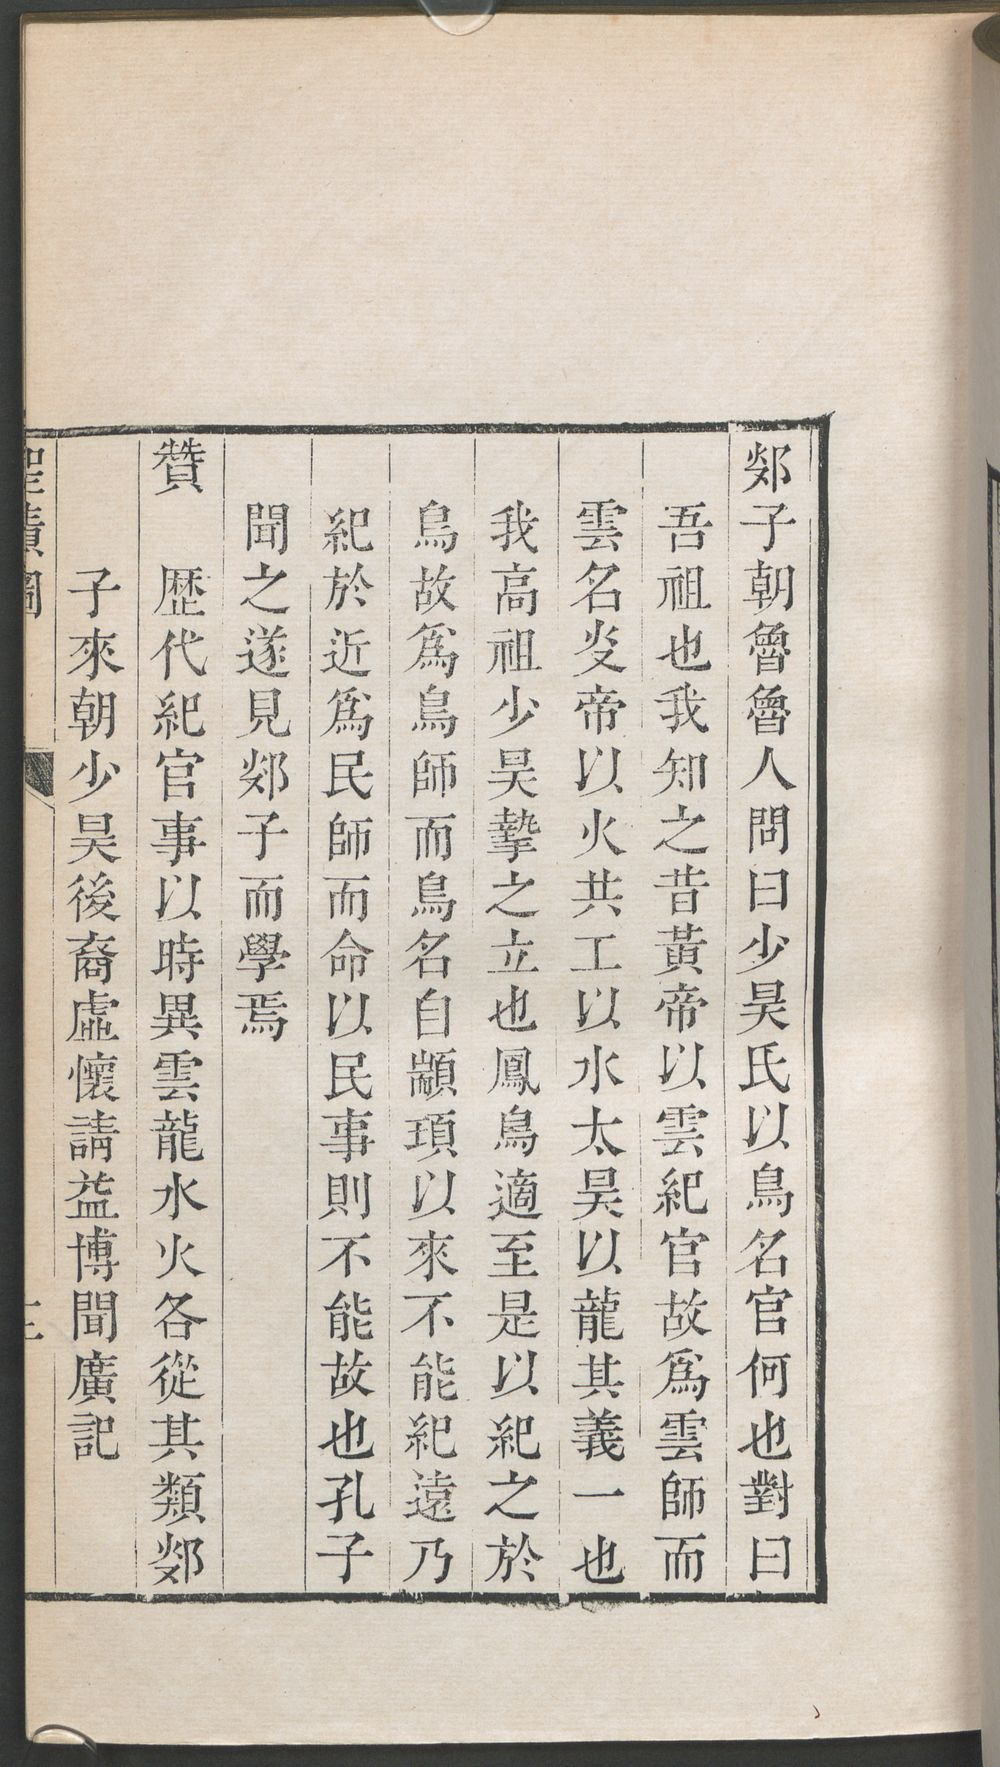 郯子朝魯魯人問曰少昊氏以鳥名官何也對曰
吾祖也我知之昔黃帝以雲紀官故爲雲師而
雲名炎帝以火共工以水太昊以龍其義一也
我高祖少昊摯之立也鳳鳥適至是以紀之於
鳥故爲鳥師而鳥名自顓頊以來不能紀遠乃
紀於近爲民師而命以民事則不能故也孔子
聞之遂見郯子而學焉
贊　歷代紀官事以時異雲龍水火各從其類郯
子來朝少昊後裔虛懷請益博聞廣記
聖蹟圖